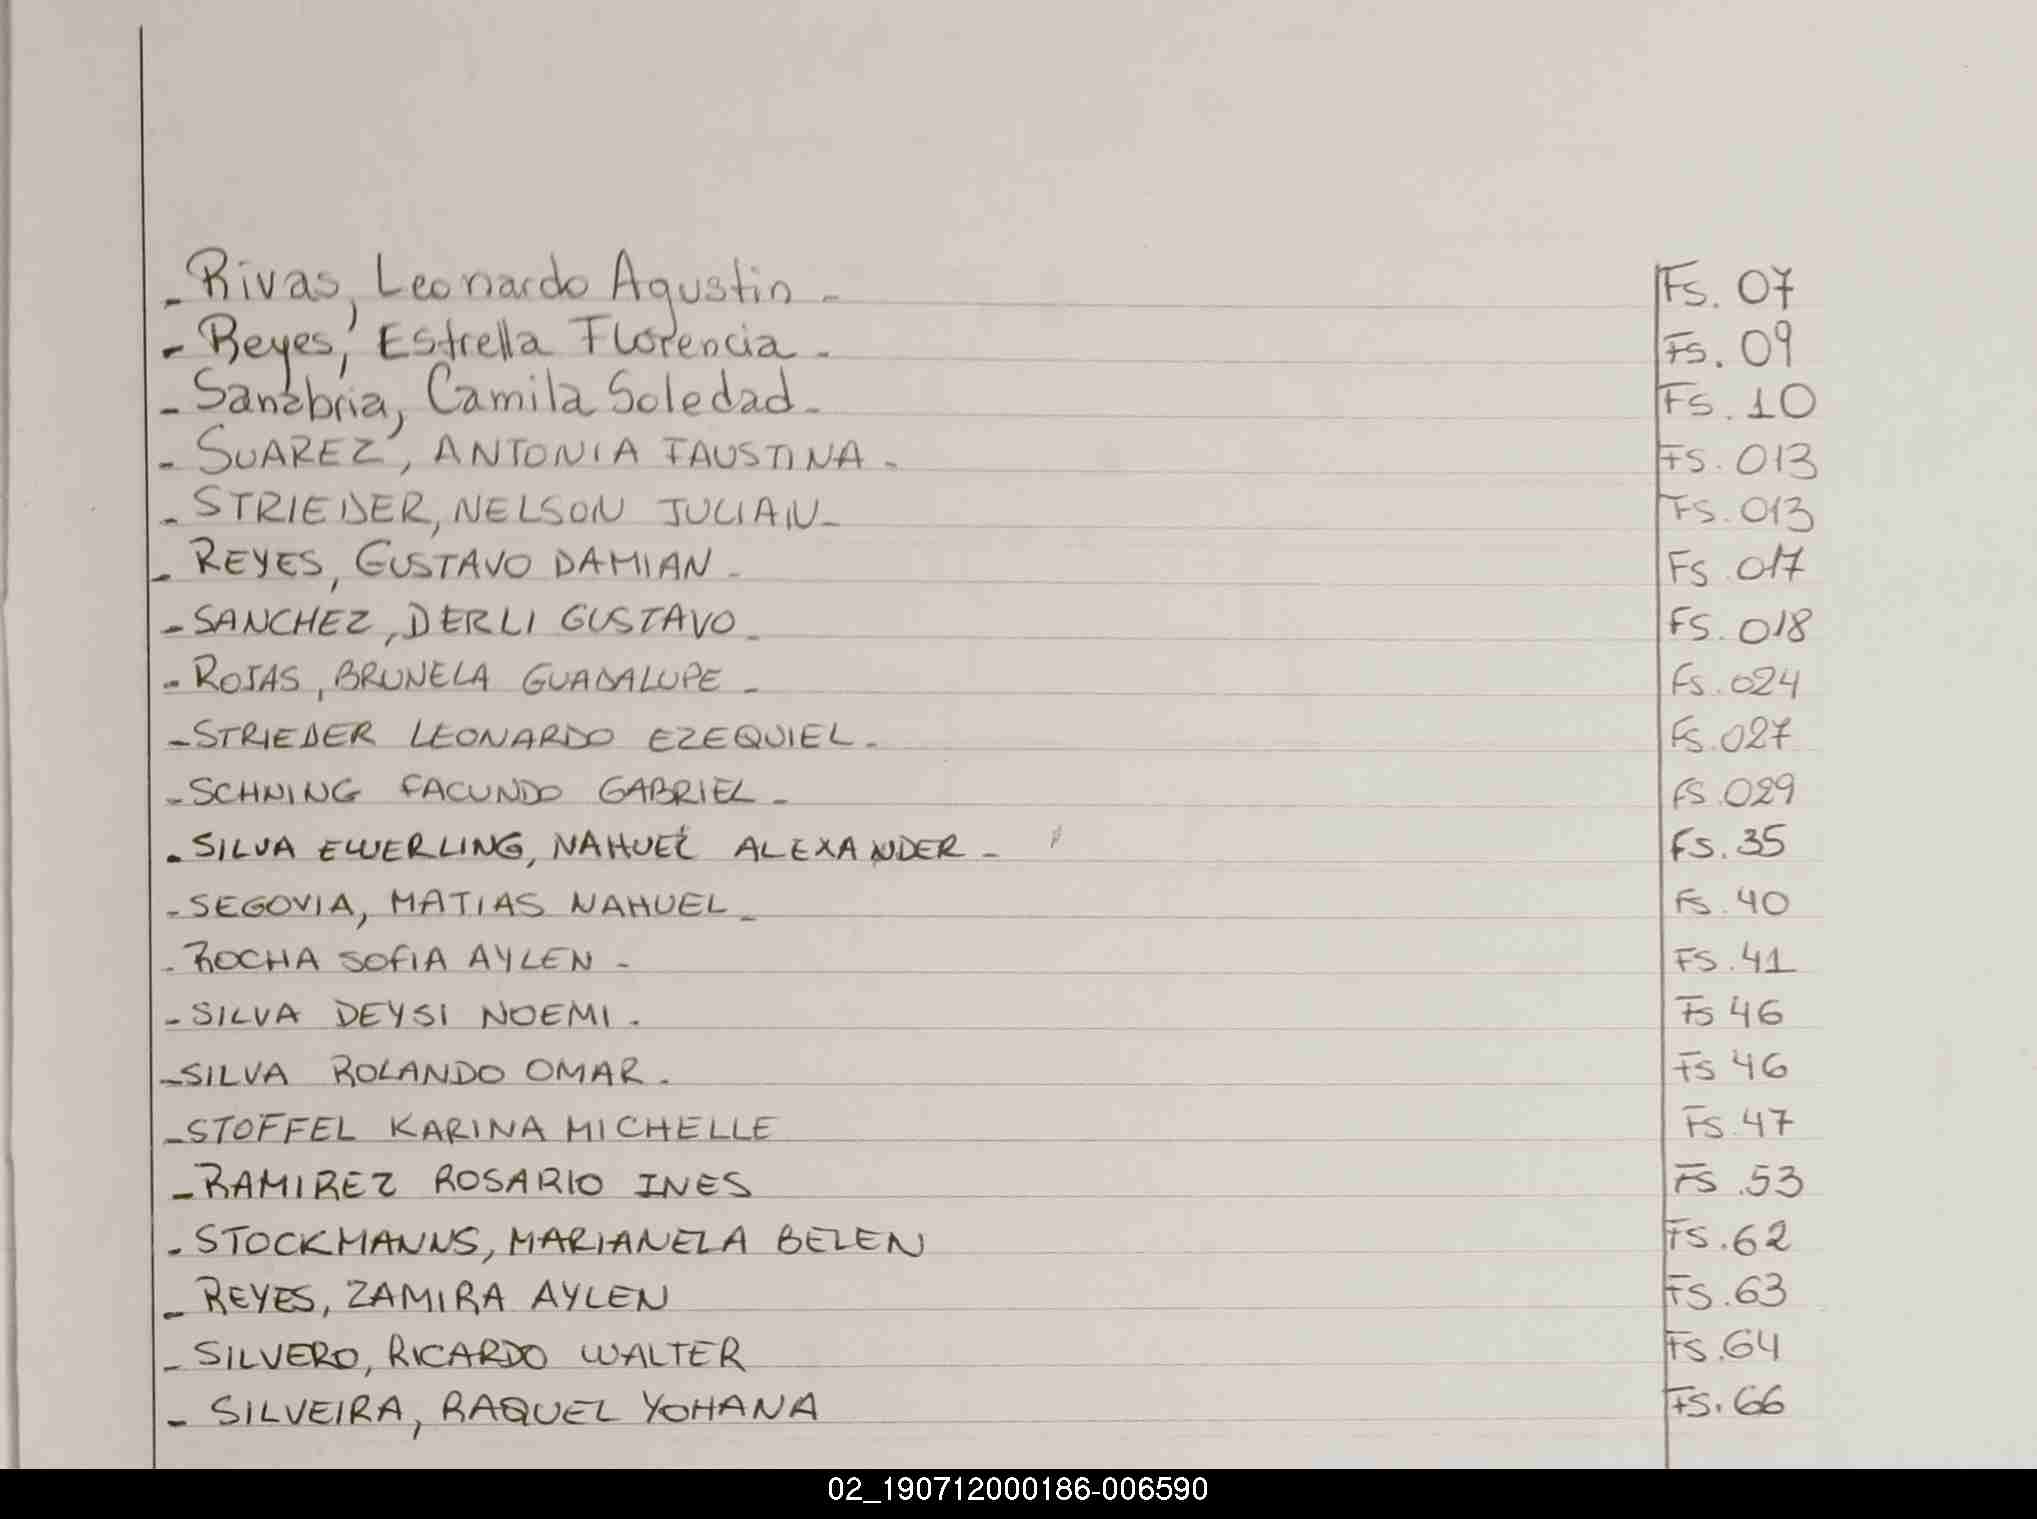 - Rivas, Leonardo Agustin - Fs. 07
- Reyes, Estrella Florencia - Fs. 09
- Sanabria, Camila Soledad - Fs. 10
- SUAREZ, ANTONIA FAUSTINA - FS. 013
- STRIEDER, NELSON JULIAN - FS. 013
- REYES, GUSTAVO DAMIAN - FS 017
- SANCHEZ, DERLI GUSTAVO - FS. 018
- ROJAS, BRUNELA GUADALUPE - FS. 024
- STRIEDER LEONARDO EZEQUIEL - FS. 027
- SCHNING FACUNDO GABRIEL - FS. 029
- SILVA EWERLING, NAHUEL ALEXANDER - FS. 35
- SEGOVIA, MATIAS NAHUEL - FS. 40
- ROCHA SOFIA AYLEN - FS. 41
- SILVA DEYSI NOEMI . FS 46
- SILVA ROLANDO OMAR . FS 46
- STOFFEL KARINA MICHELLE FS. 47
- RAMIREZ ROSARIO INES FS. 53
- STOCKMANNS, MARIANELA BELEN FS. 62
- REYES, ZAMIRA AYLEN FS. 63
- SILVERO, RICARDO WALTER FS. 64
- SILVEIRA, RAQUEL YOHANA FS. 66
02_190712000186-006590